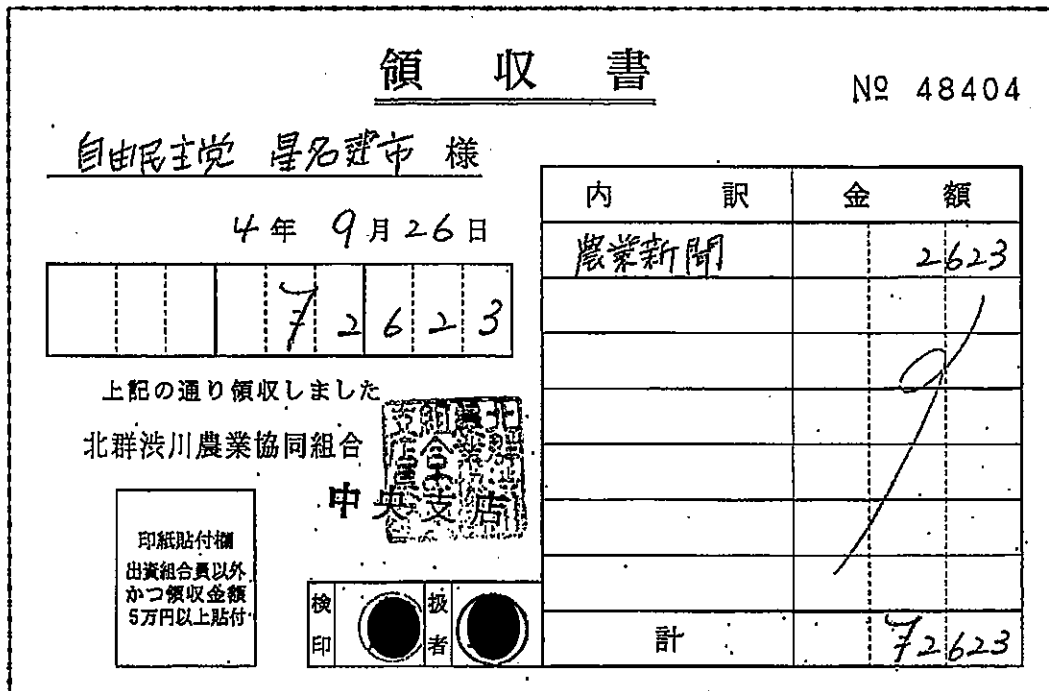 領収書
№ 48404
自由民主党 星名建市 様
4年 9月26日
¥2623
上記の通り領収しました
北群渋川農業協同組合
中央支店
印紙貼付欄
出資組合員以外
かつ領収金額
5万円以上貼付
検印
扱者
内訳 金額
農業新聞 2623
計 ¥2623